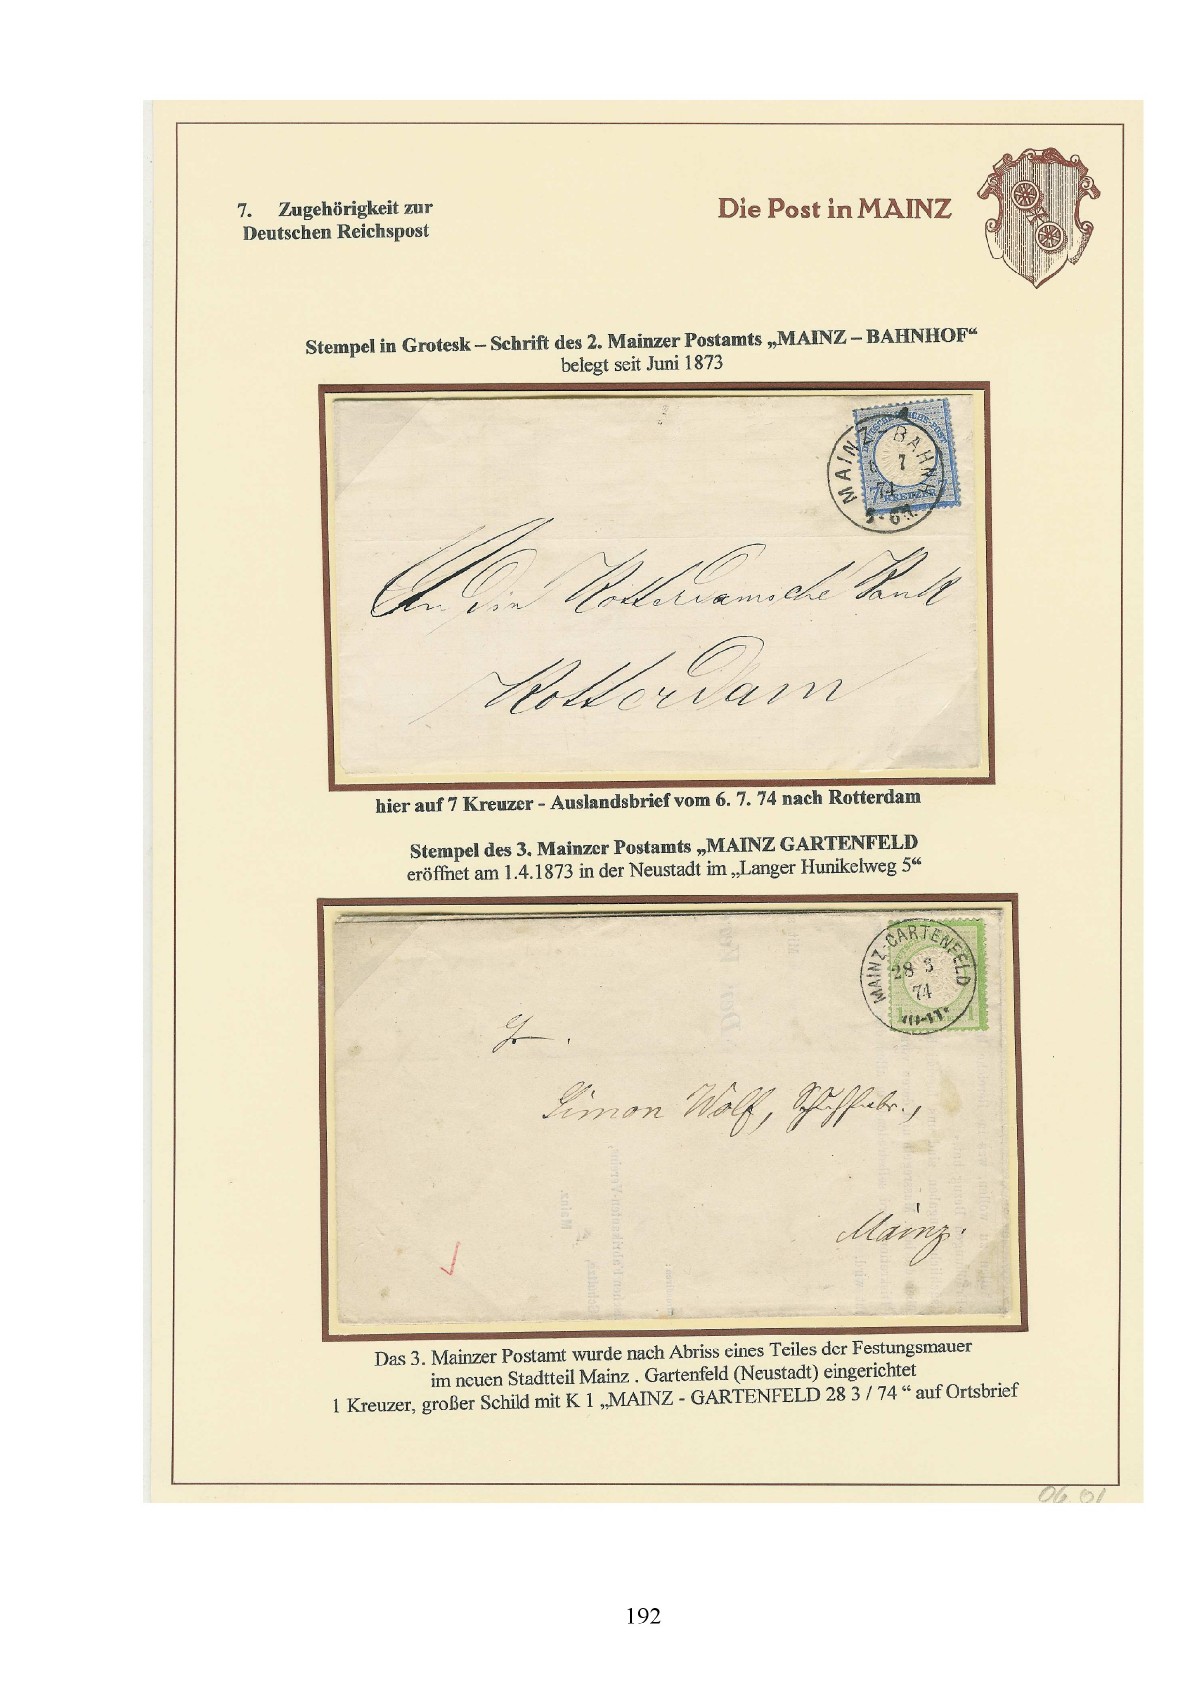 7. Zugehörigkeit zur
Deutschen Reichspost
Die Post in MAINZ
Stempel in Grotesk – Schrift des 2. Mainzer Postamts „MAINZ – BAHNHOF“
belegt seit Juni 1873
MAINZ-BAHNH
6 7
74
5-6N.
7 KREUZER
An die Rotterdamsche Bank
Rotterdam
hier auf 7 Kreuzer - Auslandsbrief vom 6. 7. 74 nach Rotterdam
Stempel des 3. Mainzer Postamts „MAINZ GARTENFELD
eröffnet am 1.4.1873 in der Neustadt im „Langer Hunikelweg 5“
MAINZ-GARTENFELD
28 3
74
10-11
1 1
Simon Wolf, Schuhfabr.,
Mainz.
Das 3. Mainzer Postamt wurde nach Abriss eines Teiles der Festungsmauer
im neuen Stadtteil Mainz . Gartenfeld (Neustadt) eingerichtet
1 Kreuzer, großer Schild mit K 1 „MAINZ - GARTENFELD 28 3 / 74 “ auf Ortsbrief
06.01
192